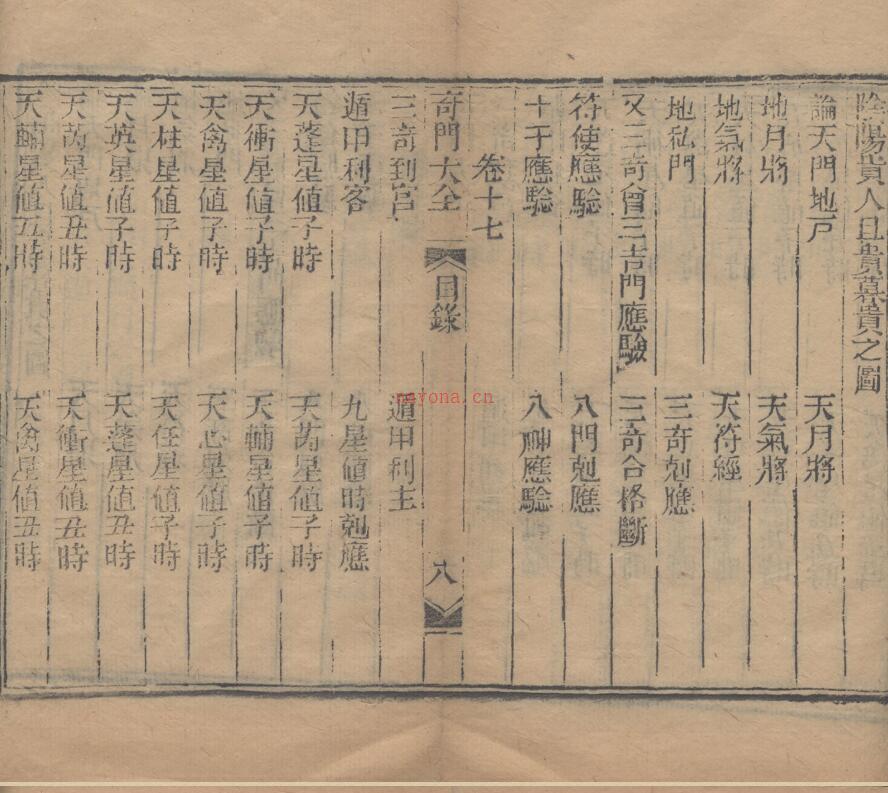 陰陽貴人旦貴暮貴之圖
論天門地戸 天月將
地月將 天氣將
地氣將 天符經
地私門 三奇剋應
又三奇會三吉門應驗 三奇合格斷
符使應驗 八門剋應
十干應驗 八神應驗
卷十七
奇門大全 目錄 八
三奇到宮 遁甲利主
遁甲利客 九星値時剋應
天蓬星値子時 天芮星値子時
天衝星値子時 天輔星値子時
天禽星値子時 天心星値子時
天柱星値子時 天任星値子時
天英星値子時 天蓬星値丑時
天芮星値丑時 天衝星値丑時
天輔星値丑時 天禽星値丑時
nayona.cn